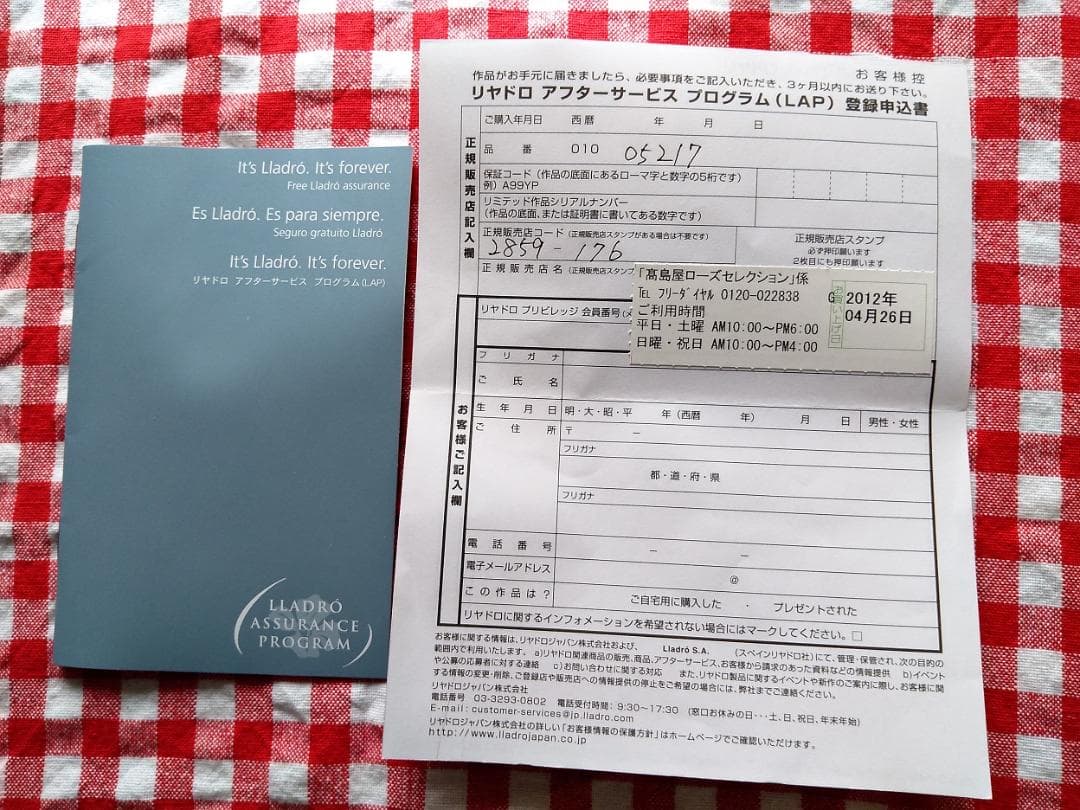 It's Lladró. It's forever.
Free Lladró assurance
Es Lladró. Es para siempre.
Seguro gratuito Lladró
It's Lladró. It's forever.
リヤドロ アフターサービス プログラム(LAP)
LLADRÓ
ASSURANCE
PROGRAM
お客様控
作品がお手元に届きましたら、必要事項をご記入いただき、3ヶ月以内にお送り下さい。
リヤドロ アフターサービス プログラム(LAP) 登録申込書
正規販売店記入欄
ご購入年月日 西暦 年 月 日
品番 010 05217
保証コード(作品の底面にあるローマ字と数字の5桁です)
例)A99YP
リミテッド作品シリアルナンバー
(作品の底面、または証明書に書いてある数字です)
正規販売店コード(正規販売店スタンプがある場合は不要です)
2859-176
正規販売店スタンプ
必ず押印願います
2枚目にも押印願います
正規販売店名(正規販売店スタンプ
「髙島屋ローズセレクション」係
TEL フリーダイヤル 0120-022838
ご利用時間
平日・土曜 AM10:00～PM6:00
日曜・祝日 AM10:00～PM4:00
G 2012年
04月26日
お買い上げ日
お客様ご記入欄
リヤドロ プリビレッジ 会員番号
フリガナ
ご氏名
生年月日 明・大・昭・平 年(西暦 年) 月 日 男性・女性
ご住所 〒 －
フリガナ
都・道・府・県
フリガナ
電話番号 － －
電子メールアドレス @
この作品は? ご自宅用に購入した ・ プレゼントされた
リヤドロに関するインフォメーションを希望されない場合にはマークしてください。□
お客様に関する情報は、リヤドロジャパン株式会社および、 Lladró S.A. (スペインリヤドロ社)にて、管理・保管され、次の目的の
範囲内で利用いたします。 a)リヤドロ関連商品の販売、商品、アフターサービス、お客様から請求のあった資料などの情報提供 b)イベント
や公募の応募者に対する連絡 c)お問い合わせに関する対応 また、リヤドロ製品に関するイベントや新作のご案内に際し、お客様に関
する情報の変更・削除、ご登録店や販売店への情報提供の停止をご希望の場合には、弊社までご連絡ください。
リヤドロジャパン株式会社
電話番号 03-3293-0802 電話受付時間:9:30～17:30 (窓口お休みの日・・・土、日、祝日、年末年始)
E-mail:customer-services@jp.lladro.com
リヤドロジャパン株式会社の詳しい「お客様情報の保護方針」はホームページでご確認いただけます。
http://www.lladrojapan.co.jp